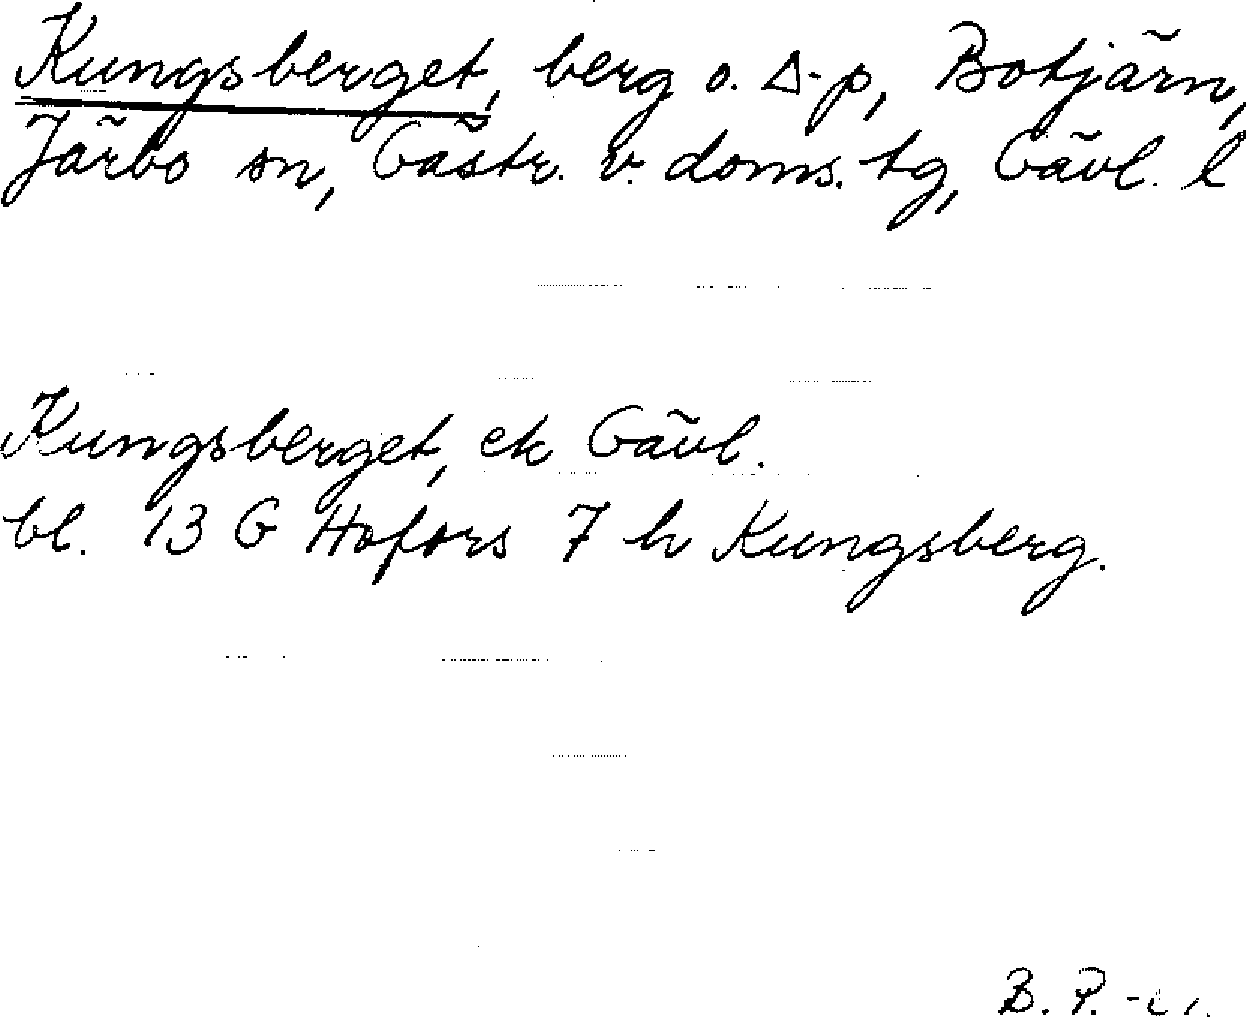 Kungsberget, berg o. Δ-p, Botjärn,
Järbo sn, Gästr. v. doms. tg, Gävl. l
Kungsberget, ek Gävl.
bl. 13 G Hofors 7 h Kungsberg.
B. P.